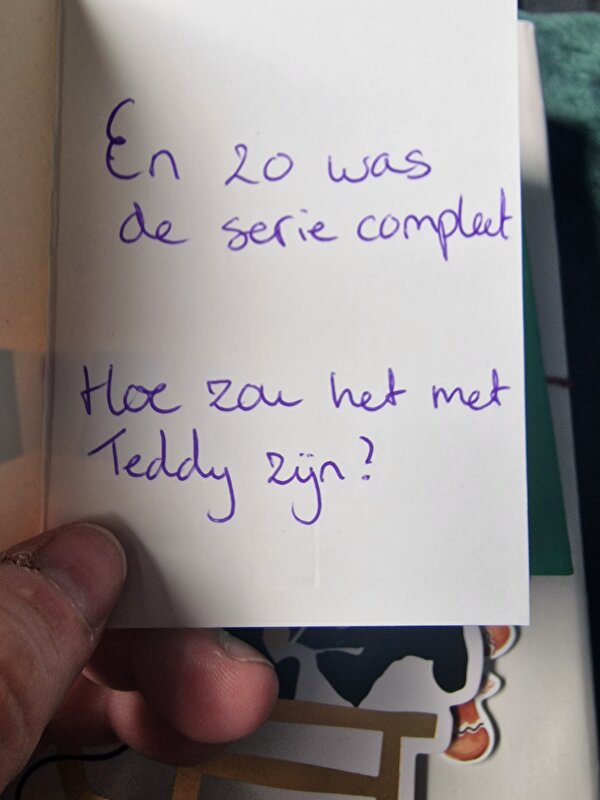 En 20 was
de serie compleet
Hoe zou het met
Teddy zijn?